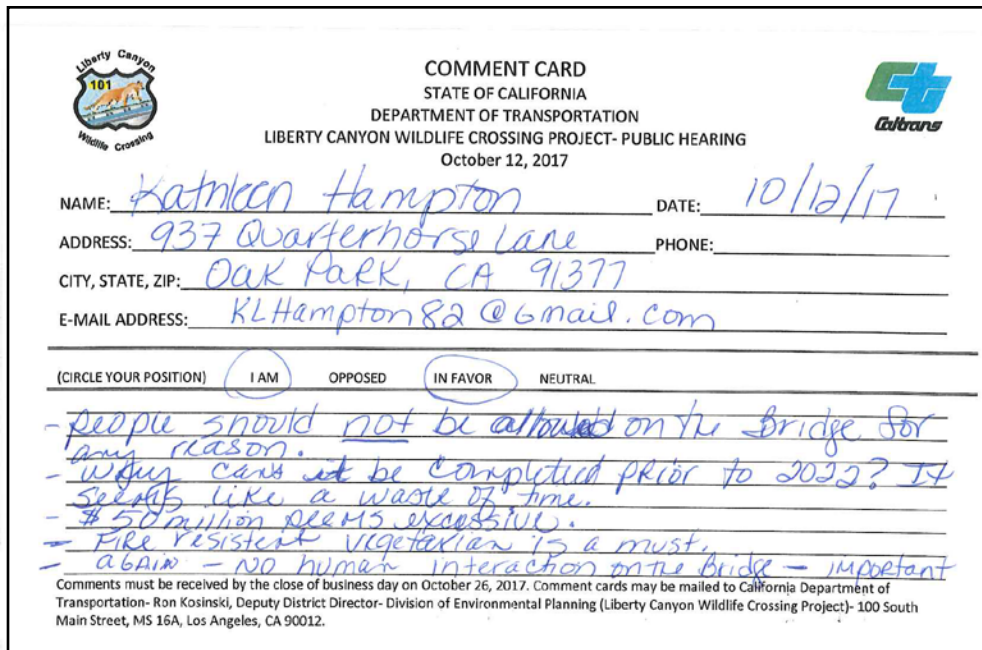 Liberty Canyon
101
Wildlife Crossing
COMMENT CARD
STATE OF CALIFORNIA
DEPARTMENT OF TRANSPORTATION
LIBERTY CANYON WILDLIFE CROSSING PROJECT- PUBLIC HEARING
October 12, 2017
Caltrans
NAME: Kathleen Hampton DATE: 10/12/17
ADDRESS: 937 Quarterhorse Lane PHONE:
CITY, STATE, ZIP: Oak Park, CA 91377
E-MAIL ADDRESS: KLHampton82@Gmail.com
(CIRCLE YOUR POSITION) I AM OPPOSED IN FAVOR NEUTRAL
- People should not be allowed on the Bridge for
any reason.
- Why can't it be completed prior to 2022? It
seems like a waste of time.
- $50 million seems excessive.
- Fire resistent vegetarian is a must.
- again - No human interaction on the Bridge - important
Comments must be received by the close of business day on October 26, 2017. Comment cards may be mailed to California Department of
Transportation- Ron Kosinski, Deputy District Director- Division of Environmental Planning (Liberty Canyon Wildlife Crossing Project)- 100 South
Main Street, MS 16A, Los Angeles, CA 90012.